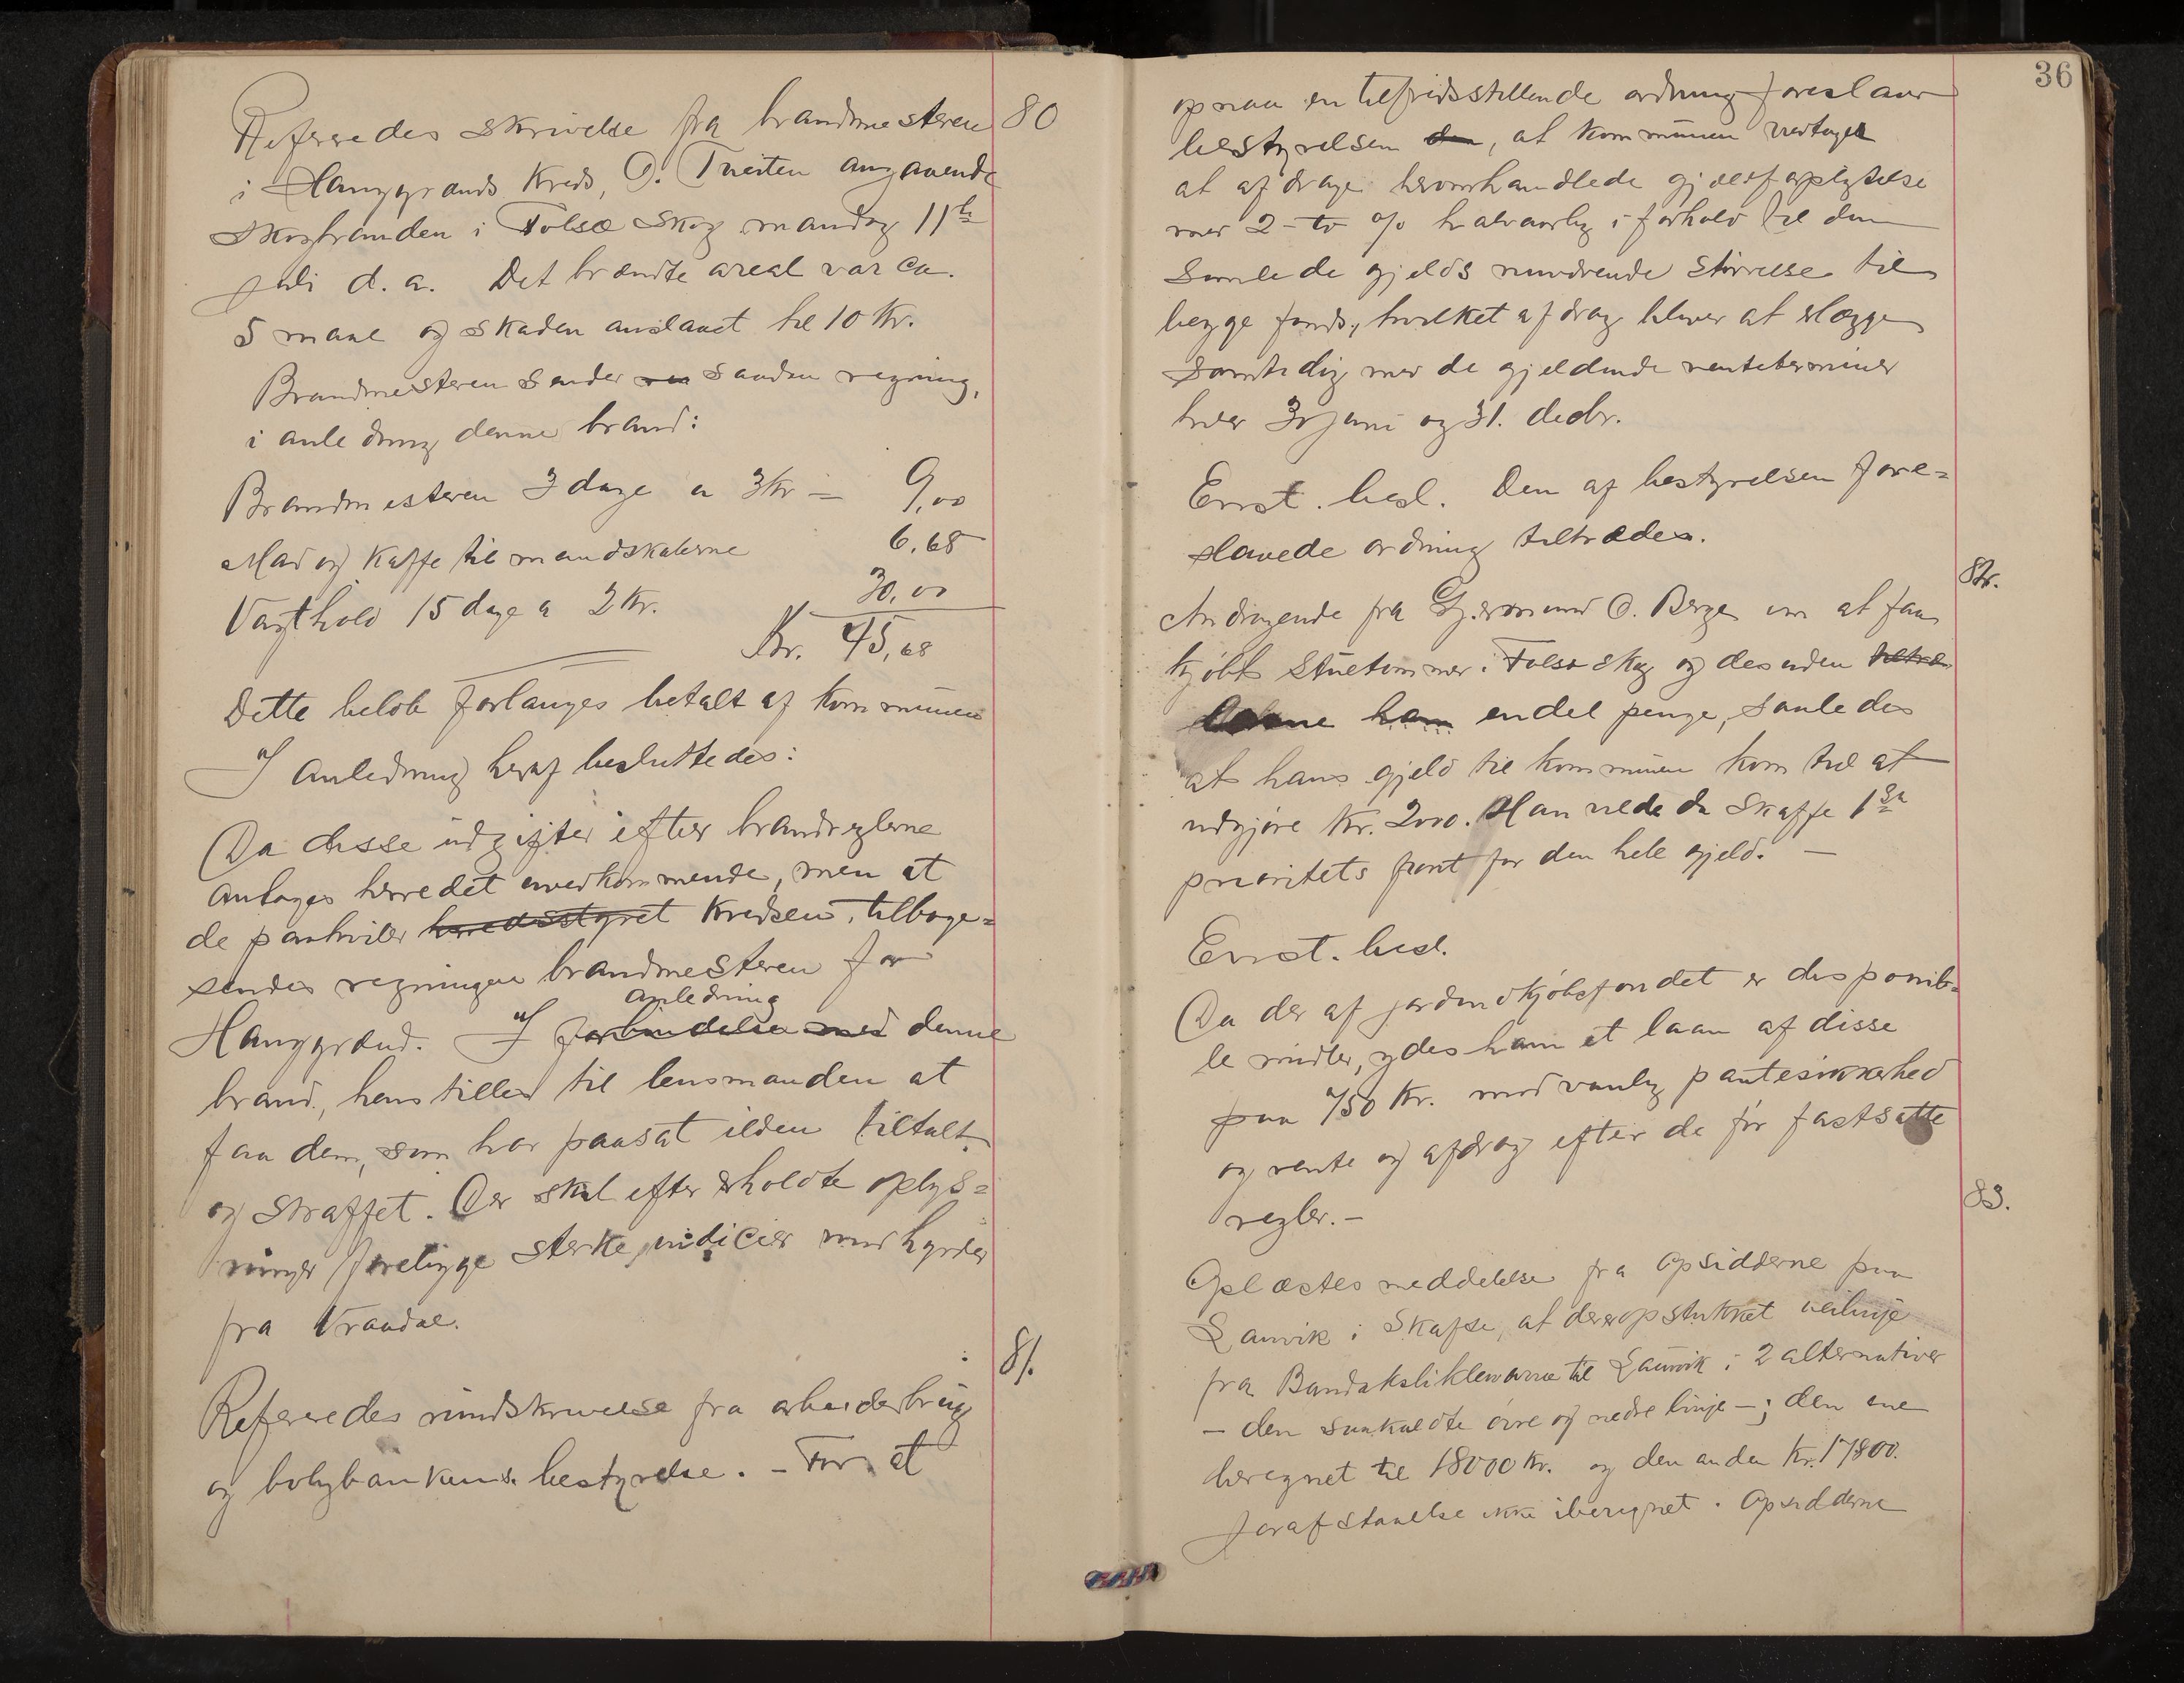 80
Refereredes skrivelse fra brandmesteren
i Hauggrands Kreds, O. Tveiten angaaende
skogbranden i Folsæ skog mandag 11te
juli d. a. Det brændte areal var ca.
5 maal og skaden anslaaet til 10 Kr.
Brandmesteren sender saadan regning,
i anledning denne brand:
Brandmesteren 3 dage a 3 Kr = 9,00
Mad og Kaffe til mandskaberne 6,68
Vagthold 15 dage a 2 Kr. 30,00
Kr. 45,68
Dette beløb forlanges betalt af kommunen
I anledning heraf besluttedes:
Da disse udgifter efter brandreglerne
antages herredet uvedkommende, men at
de paahviler herredsstyret Kredsen, tilbage=
sendes regningen brandmesteren for
anledning
Hauggrænd. I forbindelse med denne
brand, henstilles til lensmanden at
faa dem, som har paasat ilden tiltalt
og straffet. Der skal efter erholdte oplys=
ninger foreligge sterke indicier mod hyrder
fra Vraadal.
81.
Refereredes rundskrivelse fra arbeiderbrug
og boligbankens bestyrelse. – For at
36
opnaa en tilfredsstillende ordning foreslaar
bestyrelsen den, at kommunen vedtager
at afdrage heromhandlede gjældsforpligtelse
med 2 – to % halvaarlig i forhold til den
samlede gjelds nuværende størrelse til
begge fonds, hvilket afdrag bliver at erlægge
samtidig med de gjeldende renteterminer
hver 30 juni og 31. decbr.
Enst. besl. Den af bestyrelsen fore=
slaaede ordning tiltrædes.
82.
Andragende fra Gjermund O. Berge om at faa
kjøbt stuetømmer i Folsæ skog og desuden
laane ham endel penge, saaledes
at hans gjeld til kommunen kom til at
udgjøre Kr. 2000. Han vilde da skaffe 1ste
prioritets pant for den hele gjeld. –
Enst. besl.
Da der af jordindkjøbsfondet er disponib=
le midler, ydes ham et laan af disse
paa 750 Kr. mod vanlig pantesikkerhed
og rente og afdrag efter de før fastsatte
regler. –
83.
Oplæstes meddelelse fra opsidderne paa
Lauvik i Skafse, at der er opstukket veilinje
fra Bandaksliklevarne til Lauvik i 2 alternativer
– den saakaldte øvre og nedre linje –; den ene
beregnet til 18000 Kr. og den anden Kr. 17800.
Jordafstaaelse ikke iberegnet. Opsidderne